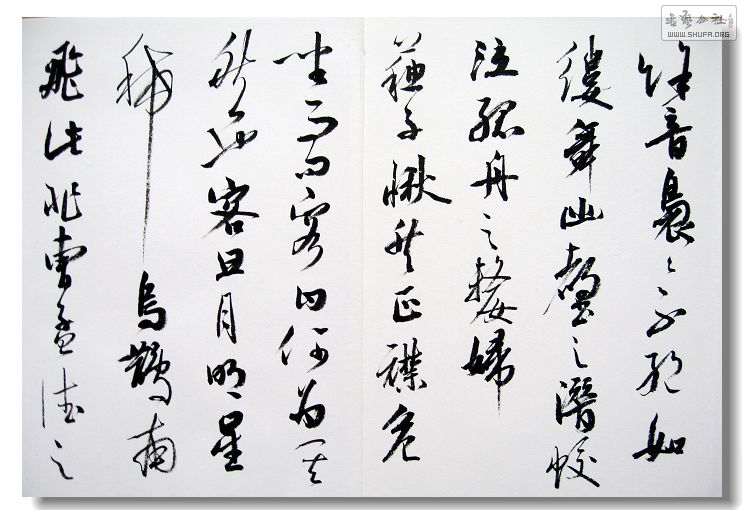 餘音裊裊不絕如
縷舞幽壑之潛蛟
泣孤舟之嫠婦
蘇子愀然正襟危
坐而問客曰何為其
然也客曰月明星
稀烏鵲南
飛此非曹孟德之
书艺公社
WWW.SHUFA.ORG